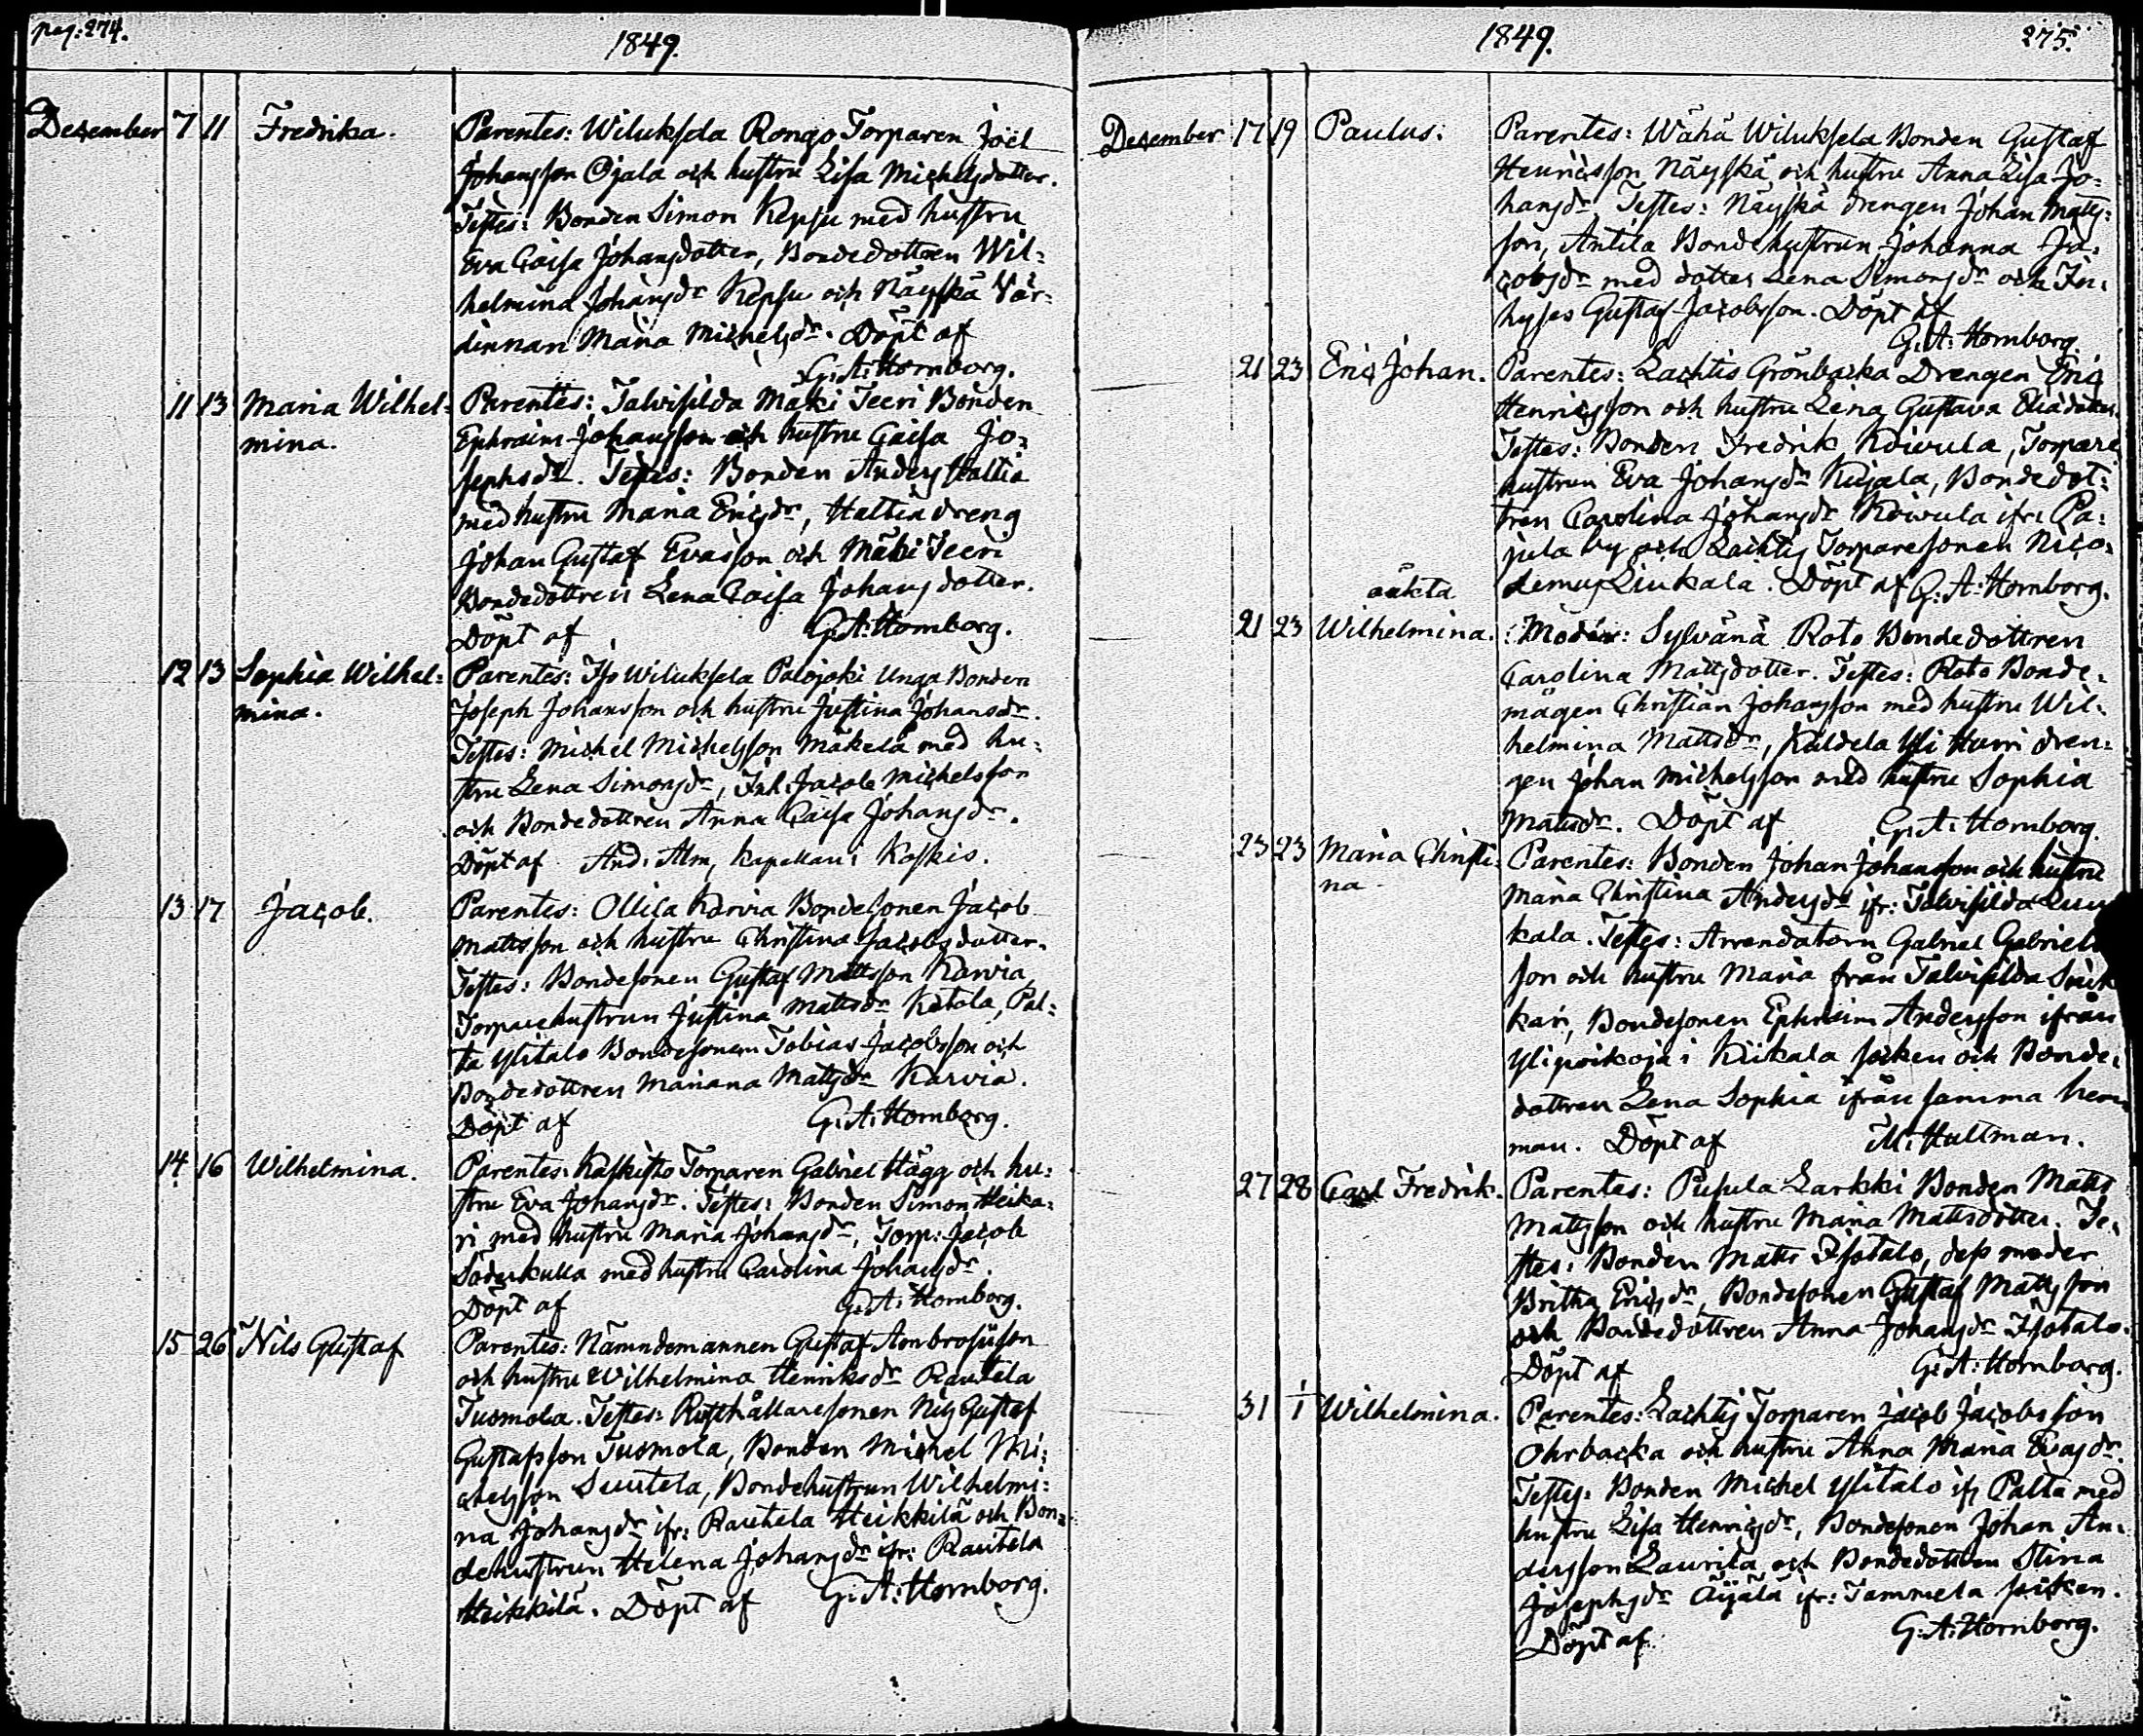 pag: 274.
1849.
December 7 11 Fredrika. Parentes: Wiluksela Rongo Torparen Joël
Johansson Ojala och hustru Lisa Michelsdotter.
Testes: Bonden Simon Kepsu med hustru
Eva Caisa Johansdotter, Bondedottren Wil=
helmina Johansdr Kepsu och Näyskä Vär=
dinnan Maria Michelsdr. Döpt af
G: A: Hornborg.
11 13 Maria Wilhel= Parentes: Talvisilda Mäki Teeri Bonden
mina. Ephraim Johansson och hustru Caisa Jo=
sephsdr. Testes: Bonden Anders Hattia
med hustru Maria Ericsdr, Hattia dreng
Johan Gustaf Evasson och Mäki Teeri
Bondedottren Lena Caisa Johansdotter.
Döpt af G: A: Hornborg.
12 13 Sophia Wilhel= Parentes: Iso Wiluksela Palojoki Unga Bonden
mina. Joseph Johansson och hustru Justina Johansdr.
Testes: Michel Michelsson Mäkelä med hu=
stru Lena Simonsdr, Inh. Jacob Michelsson
och Bondedottren Anna Caisa Johansdr.
Döpt af And: Alm, Kapellan i Koskis.
13 17 Jacob. Parentes: Ollila Karvia Bondesonen Jacob
Mattsson och hustru Christina Jacobsdotter.
Testes: Bondesonen Gustaf Mattsson Karvia,
Torparehustrun Justina Mattsdr Ketola, Pal=
ta Ylitalo Bondesonen Tobias Jacobsson och
Bondedottren Mariana Mattsdr Karvia.
Döpt af G: A: Hornborg.
14 16 Wilhelmina. Parentes: Kaskisto Torparen Gabriel Hägg och hu=
stru Eva Johansdr. Testes: Bonden Simon Heika=
ri med hustru Maria Johansdr, Torp: Jacob
Söderkulla med hustru Carolina Johansdr.
Döpt af G: A: Hornborg.
15 26 Nils Gustaf Parentes: Nämndemannen Gustaf Ambrosiison
och hustru Wilhelmina Henriksdr Rautela
Tuomola. Testes: Rusthållaresonen Nils Gustaf
Gustafsson Tuomola, Bonden Michel Mi=
chelsson Suutela, Bondehustrun Wilhelmi=
na Johansdr ifr: Rautela Heikkilä och Bon=
dehustrun Helena Johansdr ifr: Rautela
Heikkilä. Döpt af G: A: Hornborg.
1849.
275.
December 17 19 Paulus. Parentes: Wähä Wiluksela Bonden Gustaf
Henricsson Näyskä och hustru Anna Lisa Jo=
hansdr. Testes: Näyskä drengen Johan Mats=
son, Antila Bondehustrun Johanna Ja=
cobsdr med dotter Lena Simonsdr och In=
hyses Gustaf Jacobsson. Döpt af
G: A: Hornborg.
21 23 Eric Johan. Parentes: Lachtis Grönbacka Drengen Eric
Henricsson och hustru Lena Gustava Eliædotter.
Testes: Bonden Fredrik Koivula, Torpare
hustrun Eva Johansdr Kujala, Bondedot=
tren Carolina Johansdr Koivula ifr: Pa=
jula by och Lachtis Torparesonen Nico=
demus Liukala. Döpt af G: A: Hornborg.
oäkta
21 23 Wilhelmina. Moder: Sylvänä Roto Bondedottren
Carolina Mattsdotter. Testes: Roto Bonde=
mågen Christian Johansson med hustru Wil=
helmina Mattsdr, Kuldela Yli Harri dren=
gen Johan Michelsson med hustru Sophia
Mattsdr. Döpt af G: A: Hornborg.
23 23 Maria Christi= Parentes: Bonden Johan Johansson och hustru
na. Maria Christina Andersdr ifr: Talvisilda
kala. Testes: Arrendatorn Gabriel Gabriels
son och hustru Maria från Talvisilda
kari, Bondesonen Ephraim Andersson ifrån
Ylipoikoja i Kiikala socken och Bonde=
dottren Lena Sophia ifrån samma hem=
man. Döpt af M: Hallman.
27 28 Carl Fredrik. Parentes: Pusula Larkki Bonden Matts
Matsson och hustru Maria Mattsdotter. Te=
stes: Bonden Matts Isotalo, dess moder
Britha Ericsdr, Bondesonen Gustaf Mattsson
och Bondedottren Anna Johansdr Isotalo.
Döpt af G: A: Hornborg.
31 1/1 Wilhelmina. Parentes: Lachtis Torparen Jacob Jacobsson
Ohrbacka och hustru Anna Maria Evasdr.
Testes: Bonden Michel Ylitalo ifr Palta med
hustru Lisa Henricsdr, Bondesonen Johan An=
dersson Laurila och Bondedottren Stina
Josephsdr Äijälä ifr: Tammela socken.
Döpt af G: A: Hornborg.